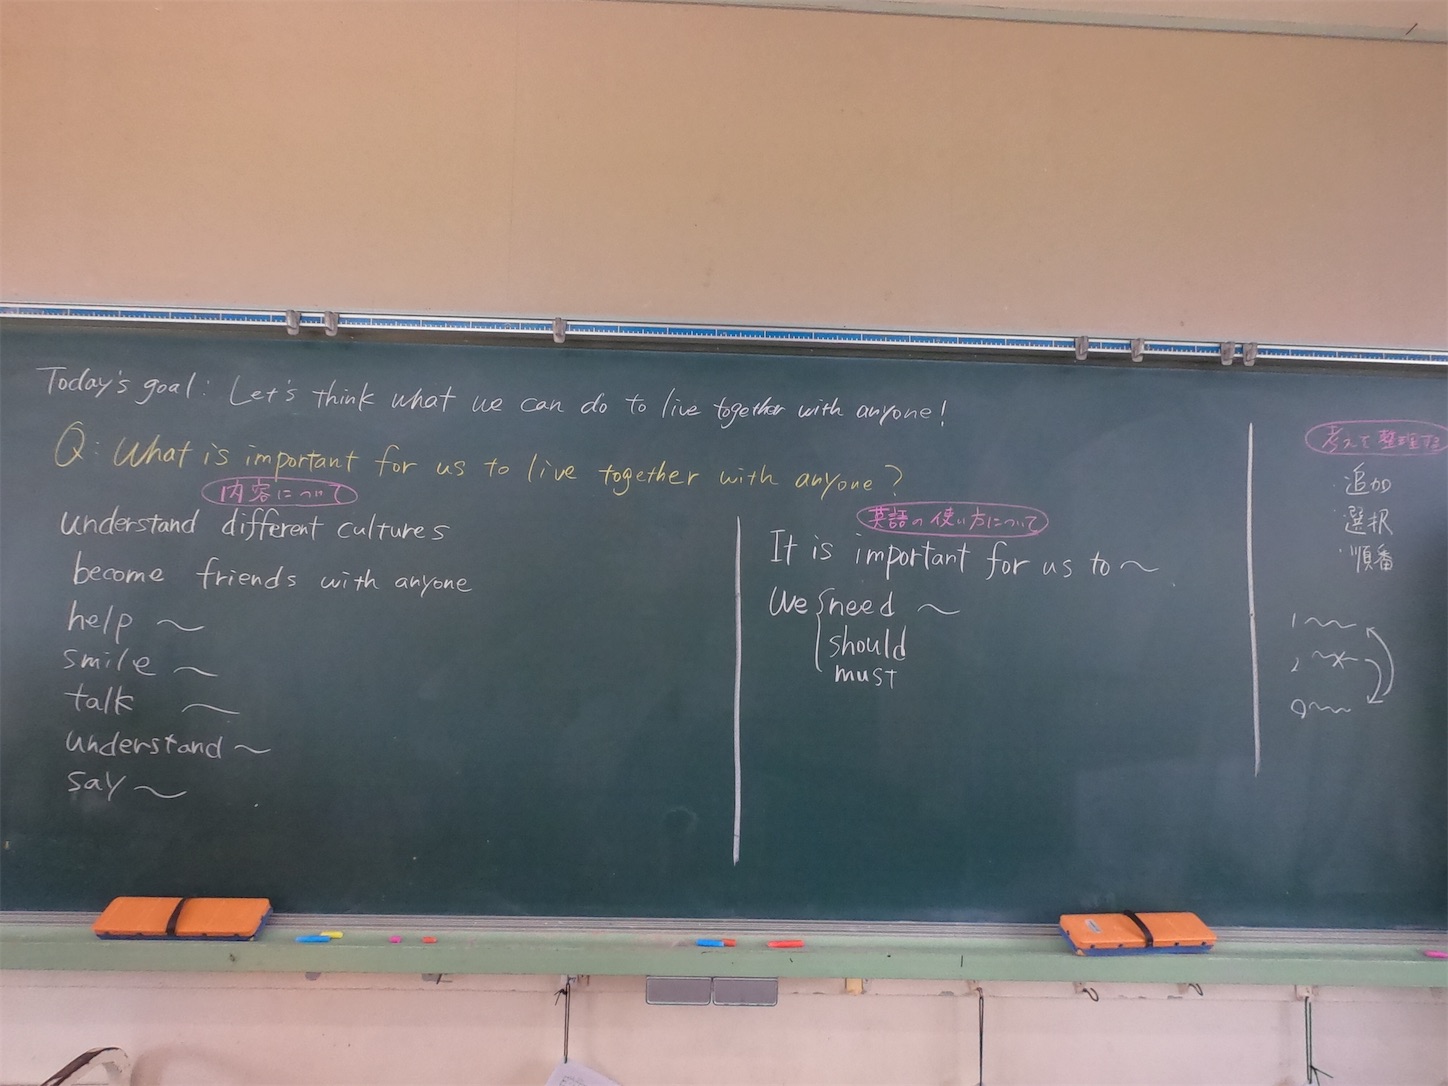 Today's goal: Let's think what we can do to live together with anyone!
Q: What is important for us to live together with anyone?
内容について
understand different cultures
become friends with anyone
help ～
smile ～
talk ～
understand ～
say ～
英語の使い方について
It is important for us to ～
We { need ～
should
must
考えて整理する
・追加
・選択
・順番
1 ～～
2 ～～